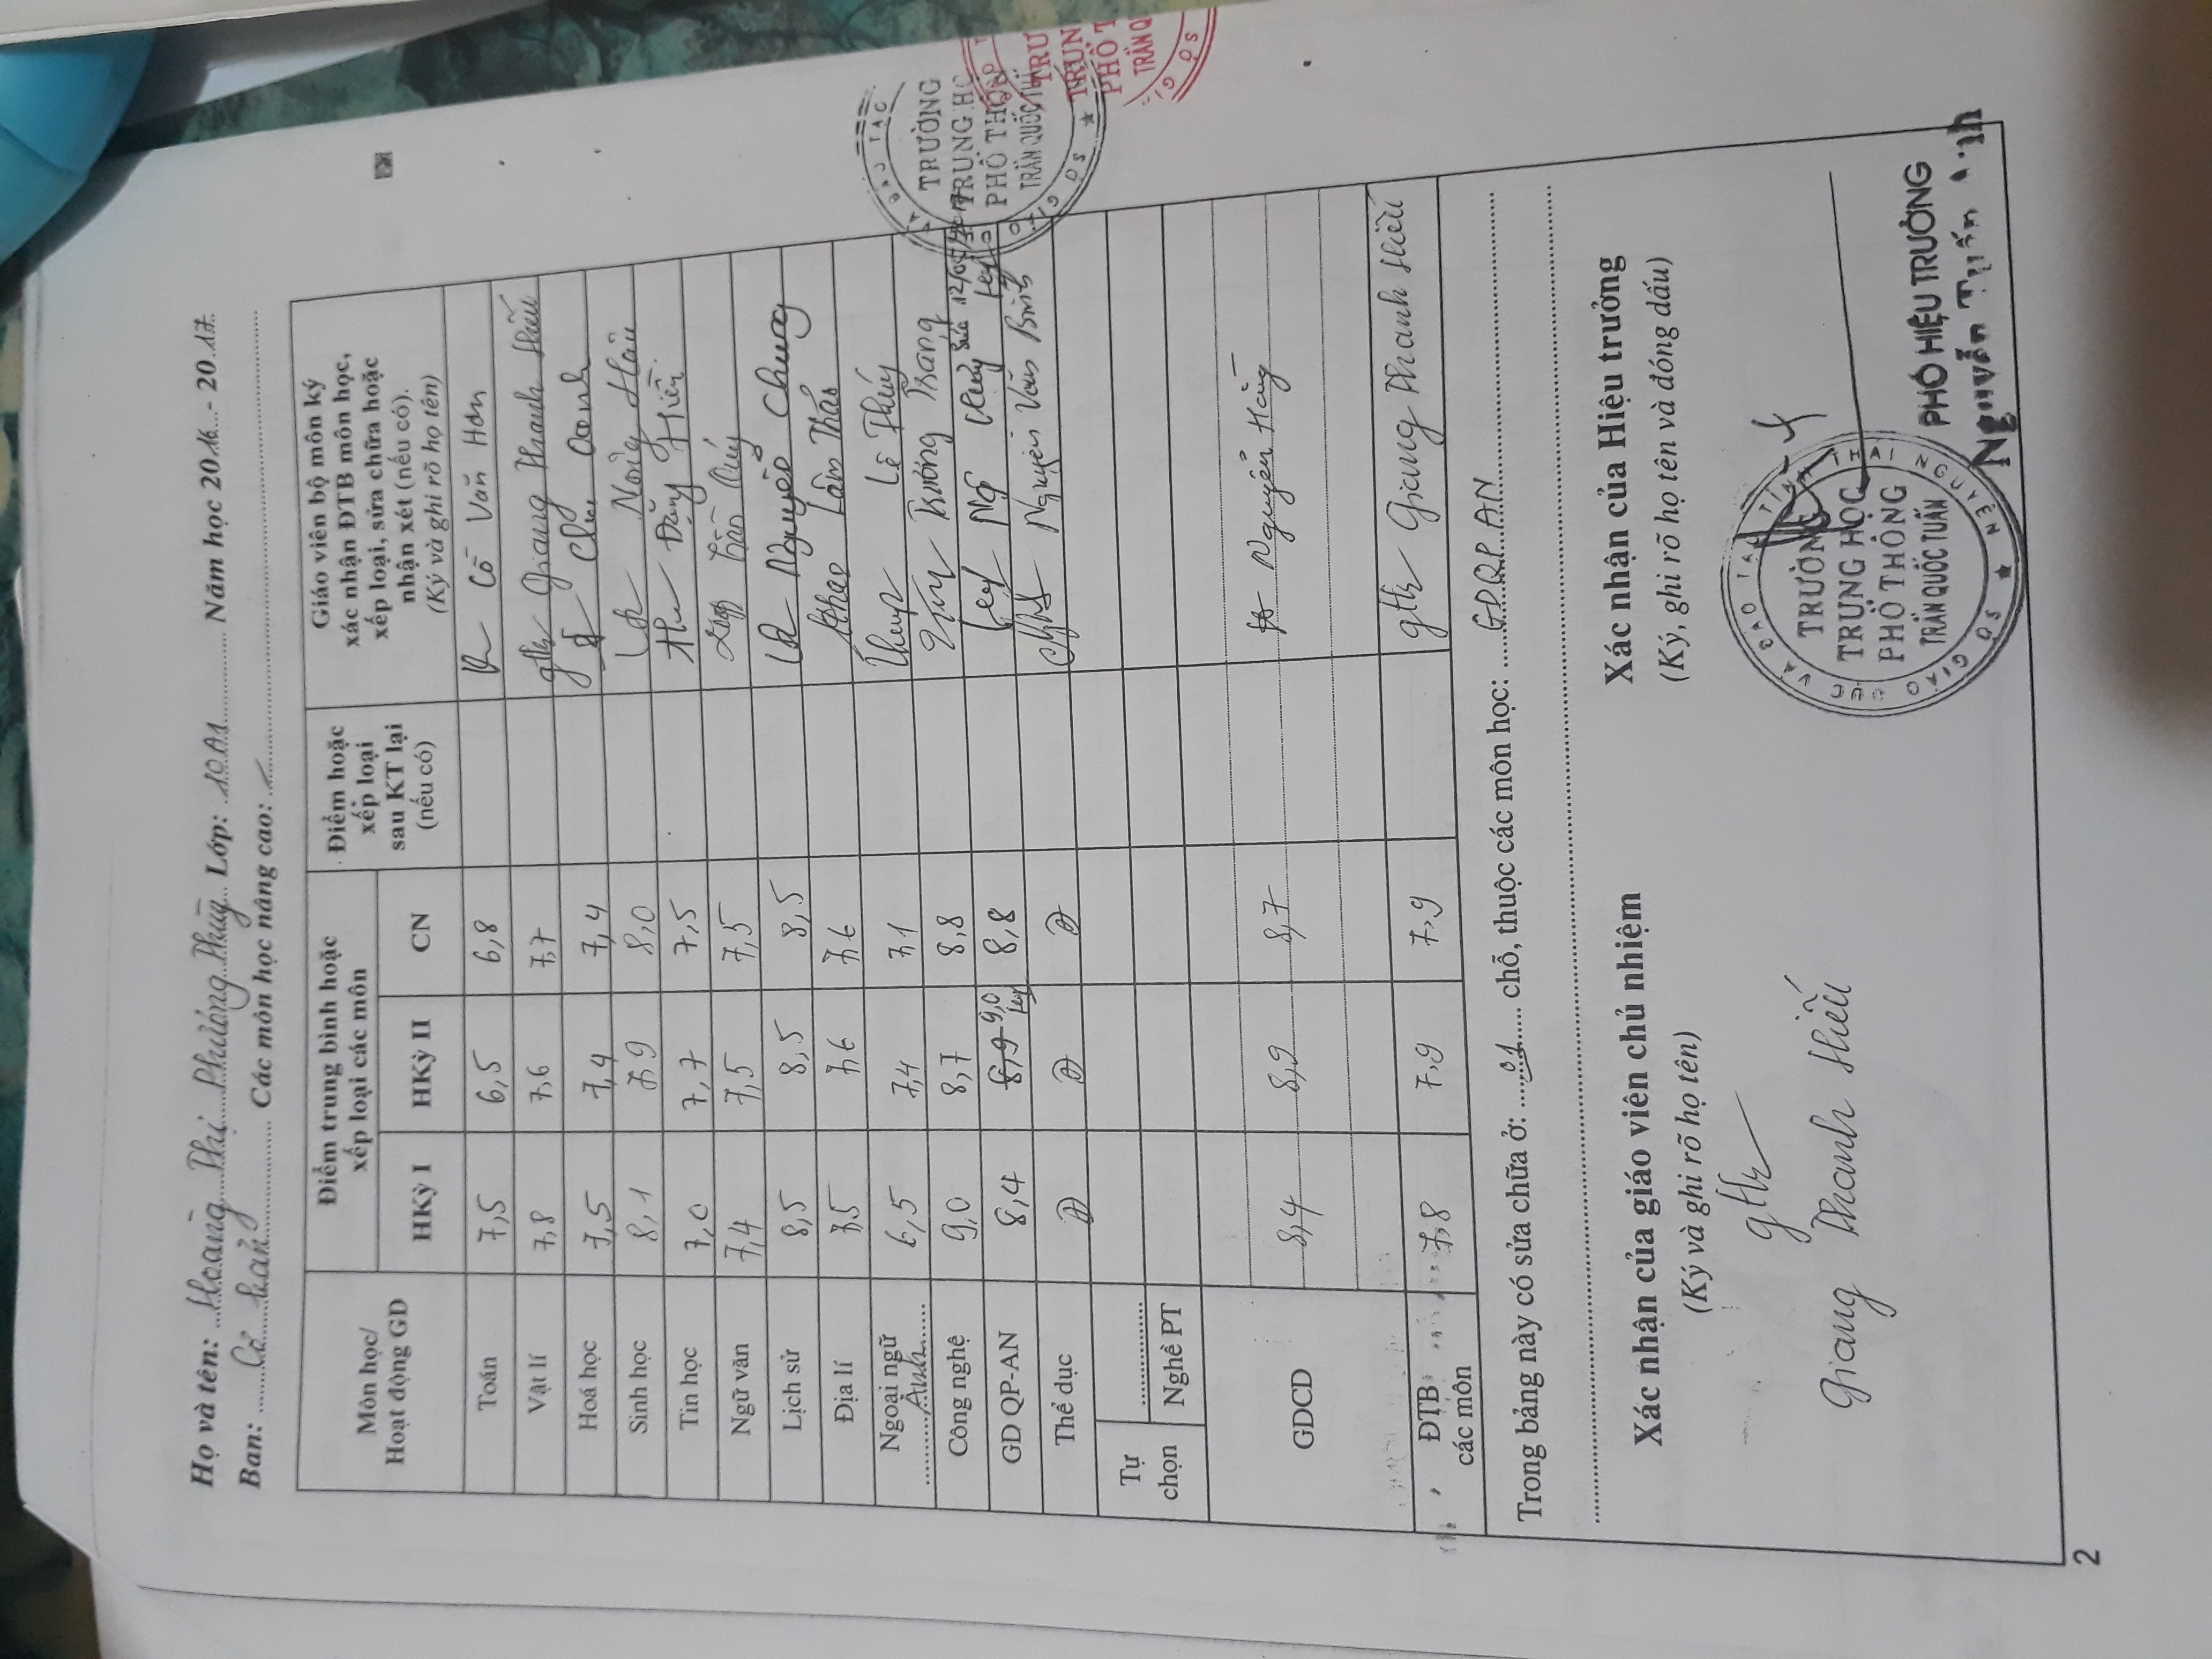 Họ và tên: Hoàng Thị Phương Thùy Lớp: 10A1 Năm học 2016 - 2017
Ban: Cơ bản Các môn học nâng cao:
Môn học/ Hoạt động GD
Điểm trung bình hoặc xếp loại các môn
HKỳ I HKỳ II CN
Điểm hoặc xếp loại sau KT lại (nếu có)
Giáo viên bộ môn ký xác nhận ĐTB môn học, xếp loại, sửa chữa hoặc nhận xét (nếu có).
(Ký và ghi rõ họ tên)
Toán 7,5 6,5 6,8 Văn Hơn
Vật lí 7,8 7,6 7,7 Giang Thanh Hiếu
Hoá học 7,5 7,4 7,4 Chu Oanh
Sinh học 8,1 7,9 8,0 Nông Hậu
Tin học 7,0 7,7 7,5 Đặng Hiền
Ngữ văn 7,4 7,5 7,5 Trần Quý
Lịch sử 8,5 8,5 8,5 Nguyễn Chung
Địa lí 7,5 7,6 7,6 Lâm Thảo
Ngoại ngữ Anh 6,5 7,4 7,1 Lê Thúy
Công nghệ 9,0 8,7 8,8 Trương Trang
GD QP-AN 8,4 8,9 9,0 8,8 Ngô Thủy Sửa
Thể dục Đ Đ Đ Nguyễn Văn Bình
Tự chọn
Nghề PT
GDCD 8,4 8,9 8,7 Nguyễn Hằng
ĐTB các môn 7,8 7,9 7,9 Giang Thanh Hiếu
Trong bảng này có sửa chữa ở: 01 chỗ, thuộc các môn học: GDQP AN
Xác nhận của giáo viên chủ nhiệm
(Ký và ghi rõ họ tên)
Giang Thanh Hiếu
Xác nhận của Hiệu trưởng
(Ký, ghi rõ họ tên và đóng dấu)
SỞ GIÁO DỤC VÀ ĐÀO TẠO TỈNH THÁI NGUYÊN
TRƯỜNG
TRUNG HỌC
PHỔ THÔNG
TRẦN QUỐC TUẤN
PHÓ HIỆU TRƯỞNG
Nguyễn Tuấn
2
TRƯỜNG
TRUNG HỌ
PHỔ THÔN
TRẦN QUỐC TUẤ
TRƯ
TRUN
PHỔ T
TRẦN Q